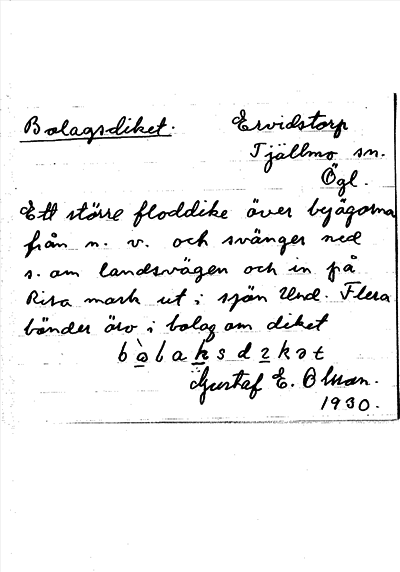 Bolagsdiket. Ervidstorp
Tjällmo sn.
Ögl.
Ett större floddike över byägorna
från n. v. och svänger ned
s. om landsvägen och in på
Risa mark ut i sjön Und. Flera
bönder äro i bolag om diket
Gustaf E. Olsson.
1930.